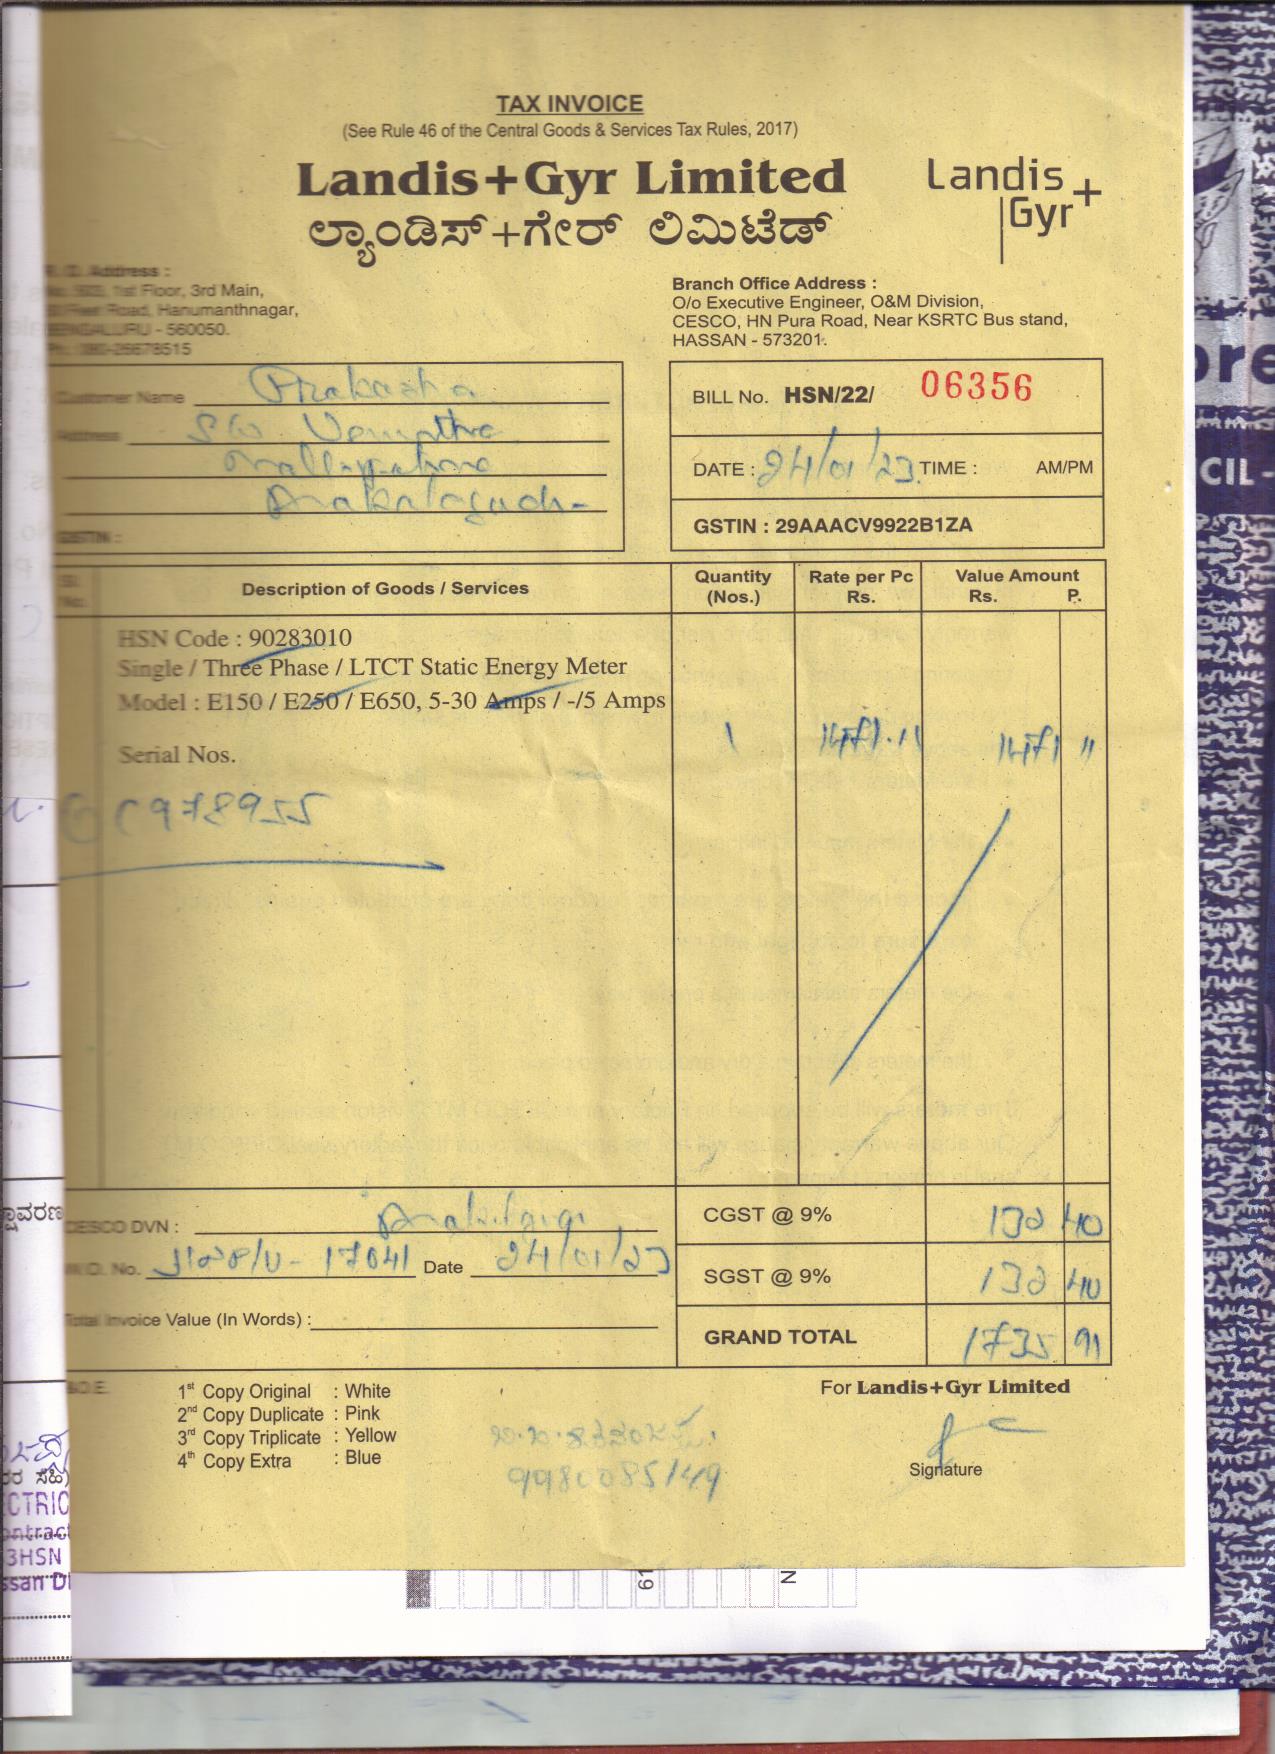 TAX INVOICE
(See Rule 46 of the Central Goods & Services Tax Rules, 2017)
Landis+Gyr Limited
ಲ್ಯಾಂಡಿಸ್+ಗೇರ್ ಲಿಮಿಟೆಡ್
Landis
Gyr+
Address :
1st Floor, 3rd Main,
Road, Hanumanthnagar,
BENGALURU - 560050.
Ph : 080-26678515
Branch Office Address :
O/o Executive Engineer, O&M Division,
CESCO, HN Pura Road, Near KSRTC Bus stand,
HASSAN - 573201.
Customer Name Prakasha
Address S/o
GSTIN :
BILL No. HSN/22/ 06356
DATE : 24/01/23 TIME : AM/PM
GSTIN : 29AAACV9922B1ZA
Sl. No. Description of Goods / Services Quantity (Nos.) Rate per Pc Rs. Value Amount Rs. P.
HSN Code : 90283010
Single / Three Phase / LTCT Static Energy Meter
Model : E150 / E250 / E650, 5-30 Amps / -/5 Amps
Serial Nos. 1 1471.11 1471 11
978955
CESCO DVN :
W.O. No. 17041 Date 24/01/23
Total Invoice Value (In Words) :
CGST @ 9% 132 40
SGST @ 9% 132 40
GRAND TOTAL 1735 91
1st Copy Original : White
2nd Copy Duplicate : Pink
3rd Copy Triplicate : Yellow
4th Copy Extra : Blue
9980085149
For Landis+Gyr Limited
Signature
CIL -
3HSN
61
N